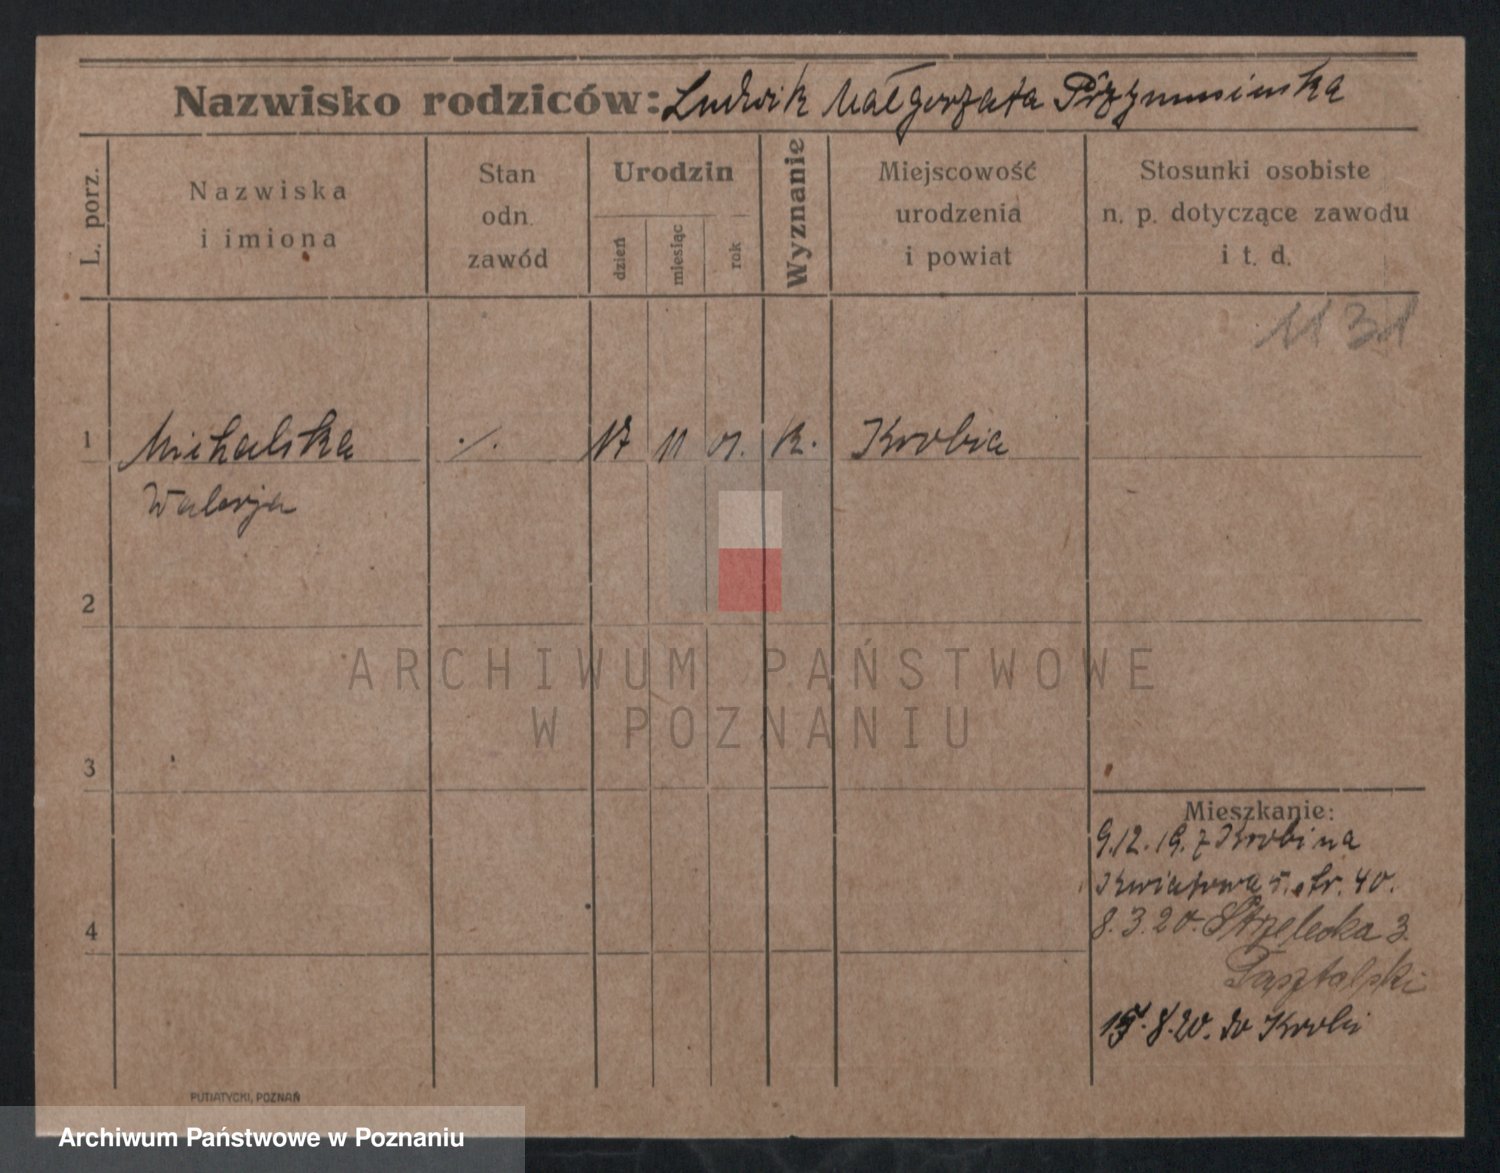 Nazwisko rodziców: Ludwik Małgorzata Przymusińska
L. porz.
Nazwiska
i imiona
Stan
odn.
zawód
Urodzin
dzień
miesiąc
rok
Wyznanie
Miejscowość
urodzenia
i powiat
Stosunki osobiste
n. p. dotyczące zawodu
i t. d.
1131
1 Michalska ./. 17 11 01. K. Krobia
Walerja
2
ARCHIWUM PAŃSTWOWE
W POZNANIU
3
Mieszkanie:
9.12.19. z Krobi na
Kwiatowa 5. str. 40.
4
8.3.20. Strzelecka 3.
15.8.20. do Krobi
PUTIATYCKI, POZNAŃ
Archiwum Państwowe w Poznaniu